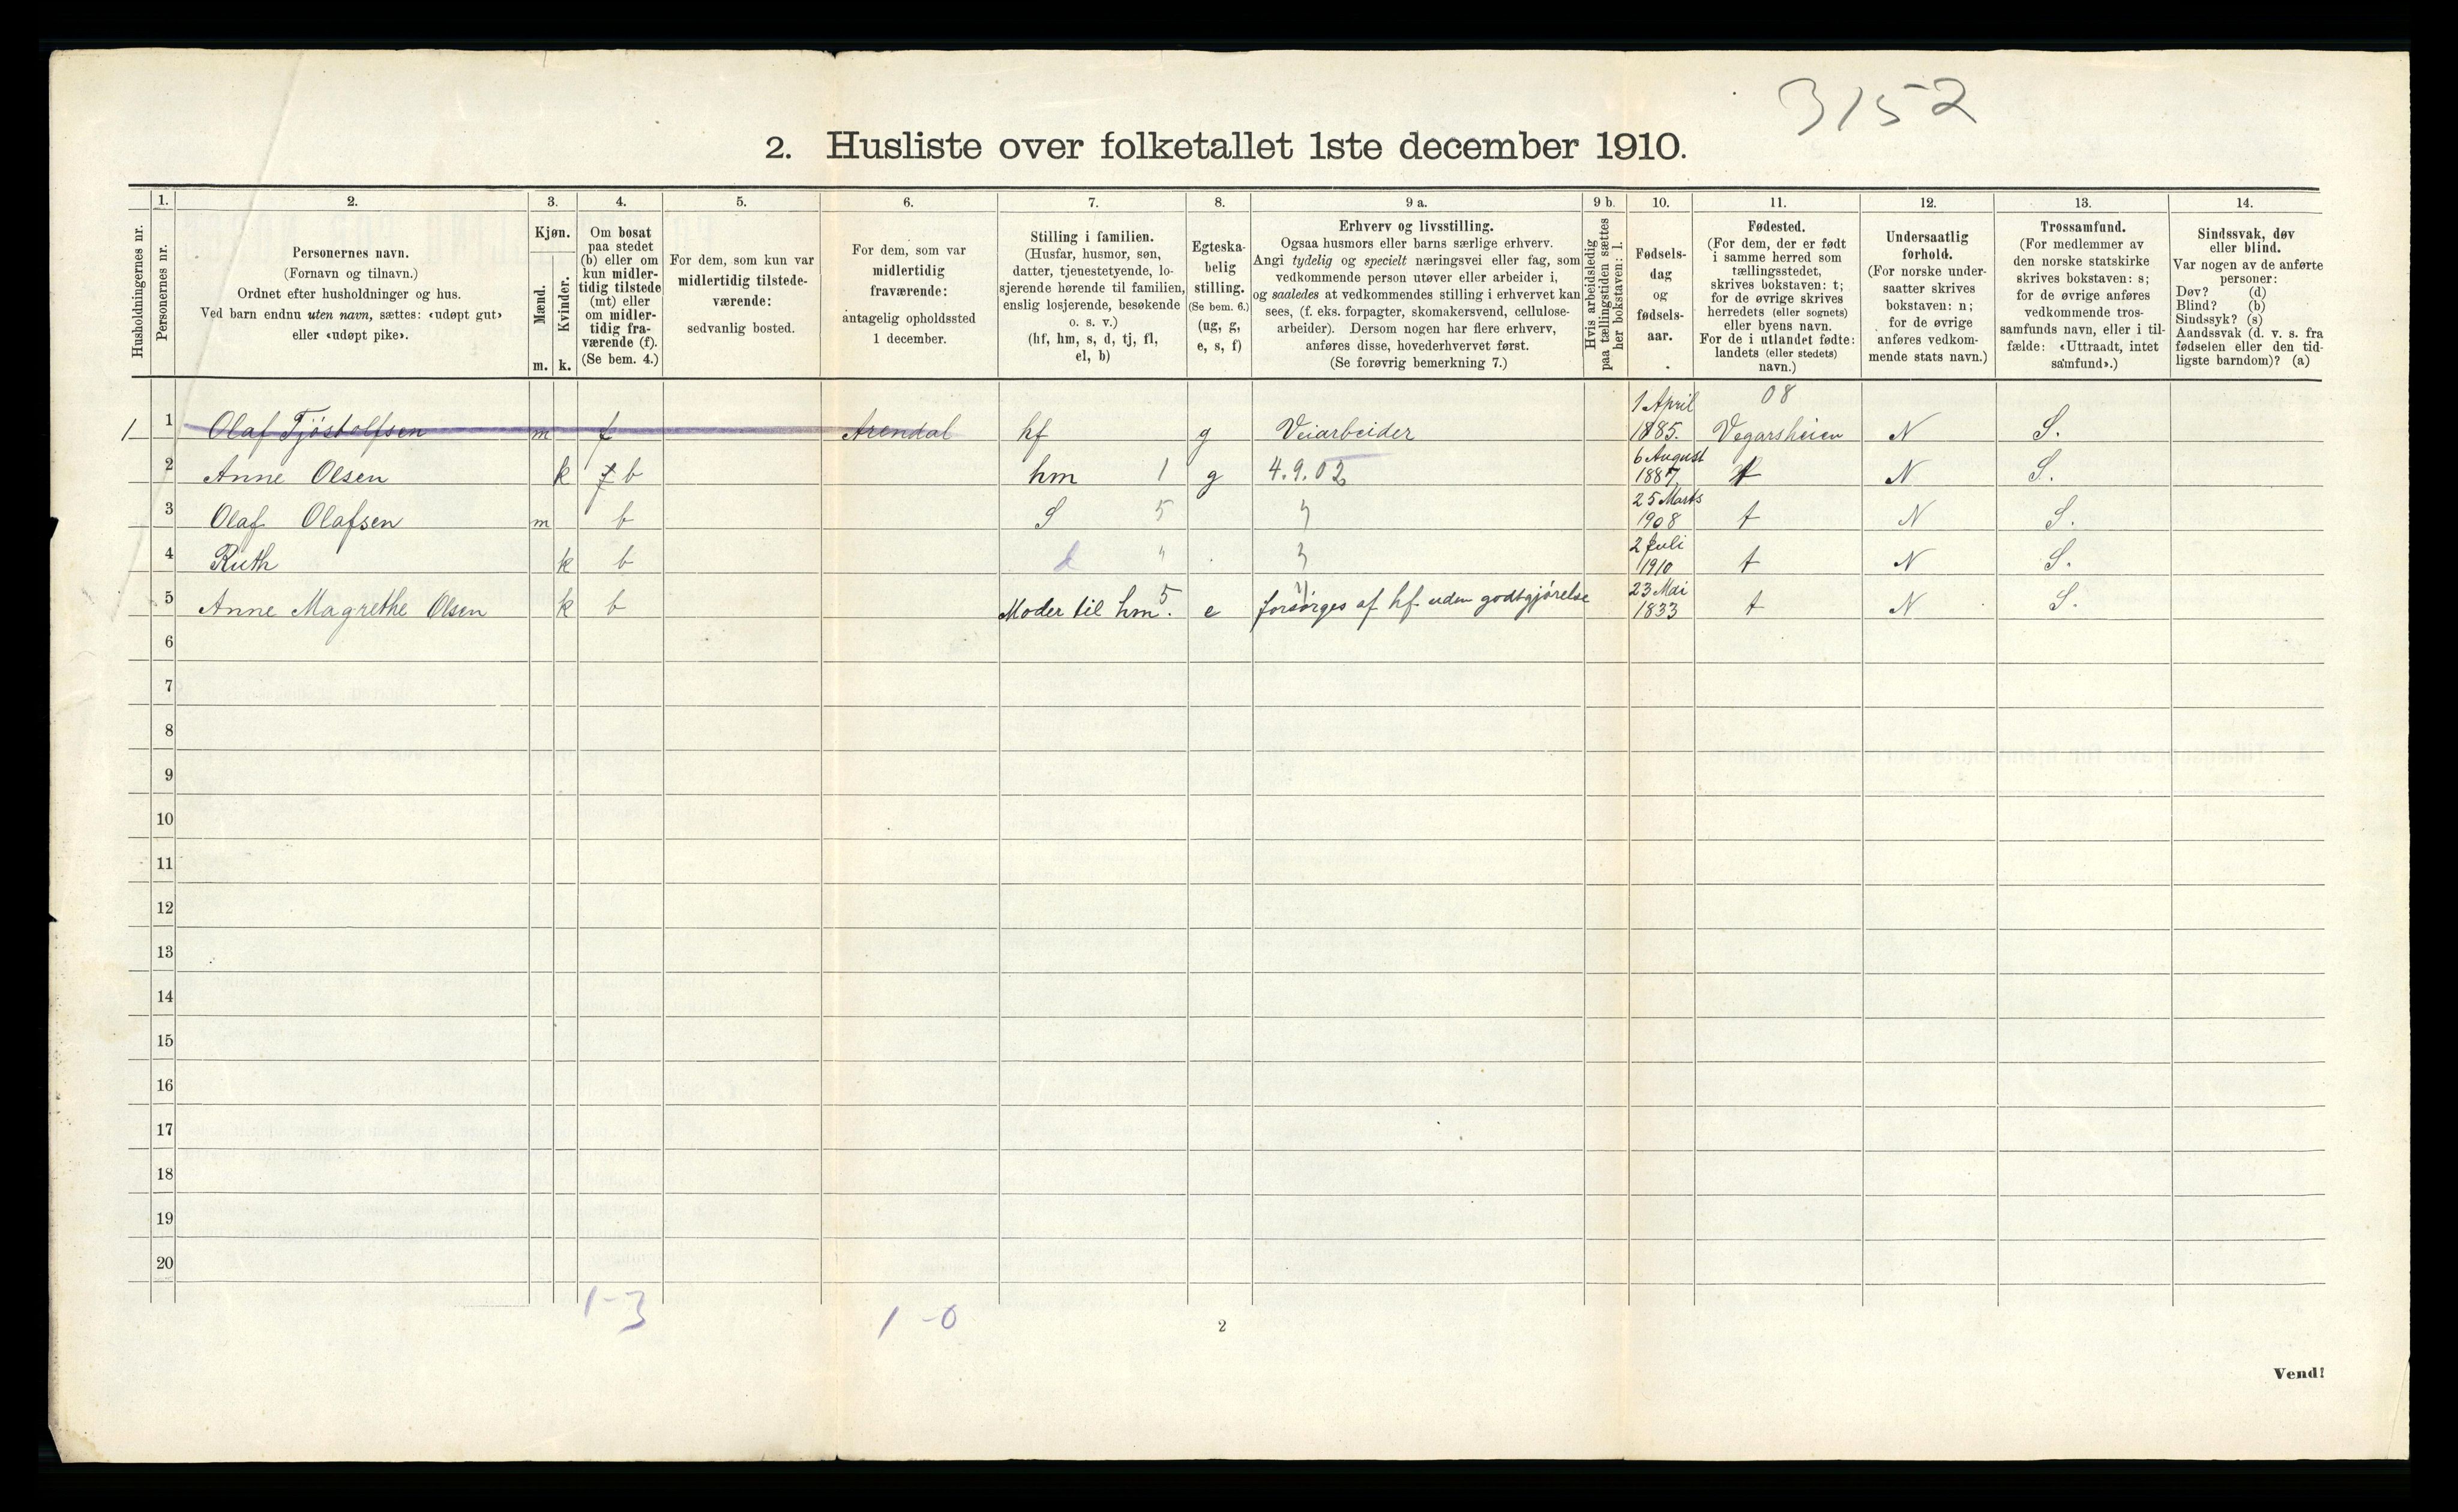 3152
2. Husliste over folketallet 1ste december 1910.
Husholdningernes nr.
1.
Personernes nr.
2.
Personernes navn.
(Fornavn og tilnavn.)
Ordnet efter husholdninger og hus.
Ved barn endnu uten navn, sættes: «udøpt gut»
eller «udøpt pike».
3.
Kjøn.
Mænd.
Kvinder.
m. k.
4.
Om bosat
paa stedet
(b) eller om
kun midler-
tidig tilstede
(mt) eller
om midler-
tidig fra-
værende (f).
(Se bem. 4.)
5.
For dem, som kun var
midlertidig tilstede-
værende:
sedvanlig bosted.
6.
For dem, som var
midlertidig
fraværende:
antagelig opholdssted
1 december.
7.
Stilling i familien.
(Husfar, husmor, søn,
datter, tjenestetyende, lo-
sjerende hørende til familien,
enslig losjerende, besøkende
o. s. v.)
(hf, hm, s, d, tj, fl,
el, b)
8.
Egteska-
belig
stilling.
(Se bem. 6.)
(ug, g,
e, s, f)
9 a.
Erhverv og livsstilling.
Ogsaa husmors eller barns særlige erhverv.
Angi tydelig og specielt næringsvei eller fag, som
vedkommende person utøver eller arbeider i,
og saaledes at vedkommendes stilling i erhvervet kan
sees, (f. eks. forpagter, skomakersvend, cellulose-
arbeider). Dersom nogen har flere erhverv,
anføres disse, hovederhvervet først.
(Se forøvrig bemerkning 7.)
9 b.
Hvis arbeidsledig
paa tællingstiden sættes
her bokstaven: l.
10.
Fødsels-
dag
og
fødsels-
aar.
11.
Fødested.
(For dem, der er født
i samme herred som
tællingsstedet,
skrives bokstaven: t;
for de øvrige skrives
herredets (eller sognets)
eller byens navn.
For de i utlandet fødte:
landets (eller stedets)
navn.)
12.
Undersaatlig
forhold.
(For norske under-
saatter skrives
bokstaven: n;
for de øvrige
anføres vedkom-
mende stats navn.)
13.
Trossamfund.
(For medlemmer av
den norske statskirke
skrives bokstaven: s;
for de øvrige anføres
vedkommende tros-
samfunds navn, eller i til-
fælde: «Uttraadt, intet
samfund».)
14.
Sindssvak, døv
eller blind.
Var nogen av de anførte
personer:
Døv? (d)
Blind? (b)
Sindssyk? (s)
Aandssvak (d. v. s. fra
fødselen eller den tid-
ligste barndom)? (a)
1 1 Olaf Tjøstolfsen m f Arendal hf g Veiarbeider 1 April 1885. 08 Vegarsheien N S.
2 Anne Olsen k f b hm 1 g 4.9.02 6 August 1887 t N S.
3 Olaf Olafsen m b S 5 25 Marts 1908 t N S.
4 Ruth k b d " 2 Juli 1910 t N S.
5 Anne Magrethe Olsen k b Moder til hm. 5 e forsørges af hf uden godtgjørelse 23 Mai 1833 t N S.
6
7
8
9
10
11
12
13
14
15
16
17
18
19
20
1-3
1-0
2
Vend!